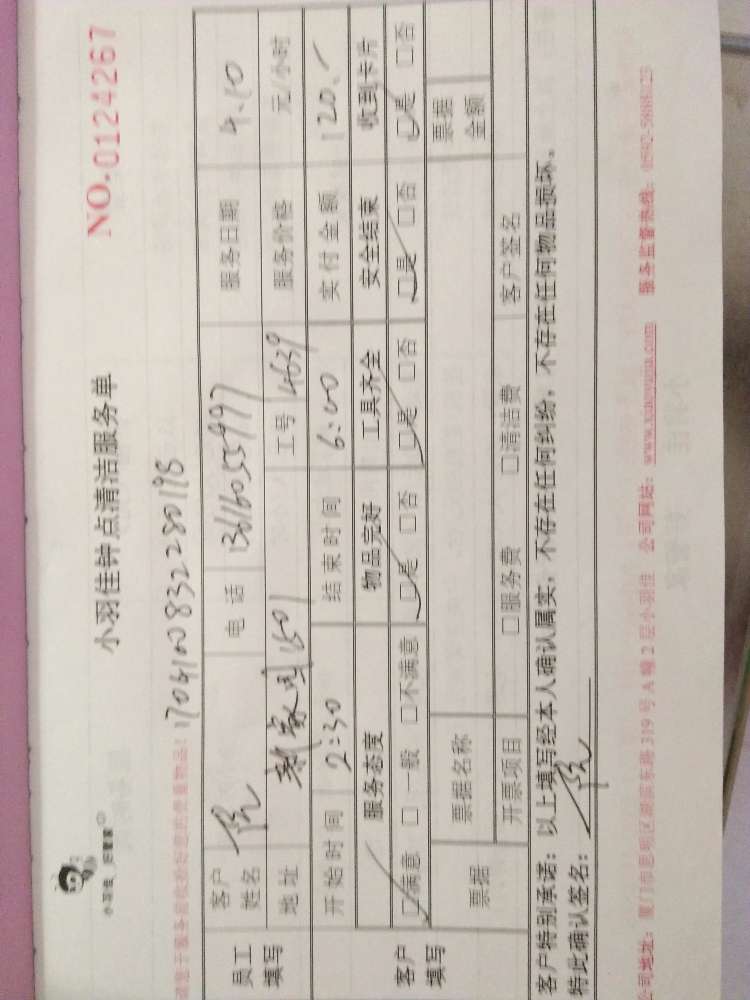 小羽佳 | 好管家
小羽佳钟点清洁服务单
NO.0124267
170410083228019S
员工填写
客户姓名 阮 电 话 13616055997 服务日期 4.10
地 址 1501 工号 4639 服务价格 元/小时
开 始 时 间 2:30 结 束 时 间 6:00 实 付 金 额 120.-
客户填写
服务态度 物品完好 工具齐全 安全结束 收到卡片
☑满意 □ 一般 □不满意 ☑是 □否 ☑是 □否 ☑是 □否 ☑是 □否
票据 票据名称 票据金额
开票项目 □服务费 □清洁费 客户签名
客户特别承诺：以上填写经本人确认属实，不存在任何纠纷，不存在任何物品损坏。
特此确认签名： 阮
公司地址：厦门市思明区湖滨东路319号A幢2层小羽佳 公司网站：www.xiaoyujia.com 服务监督热线：